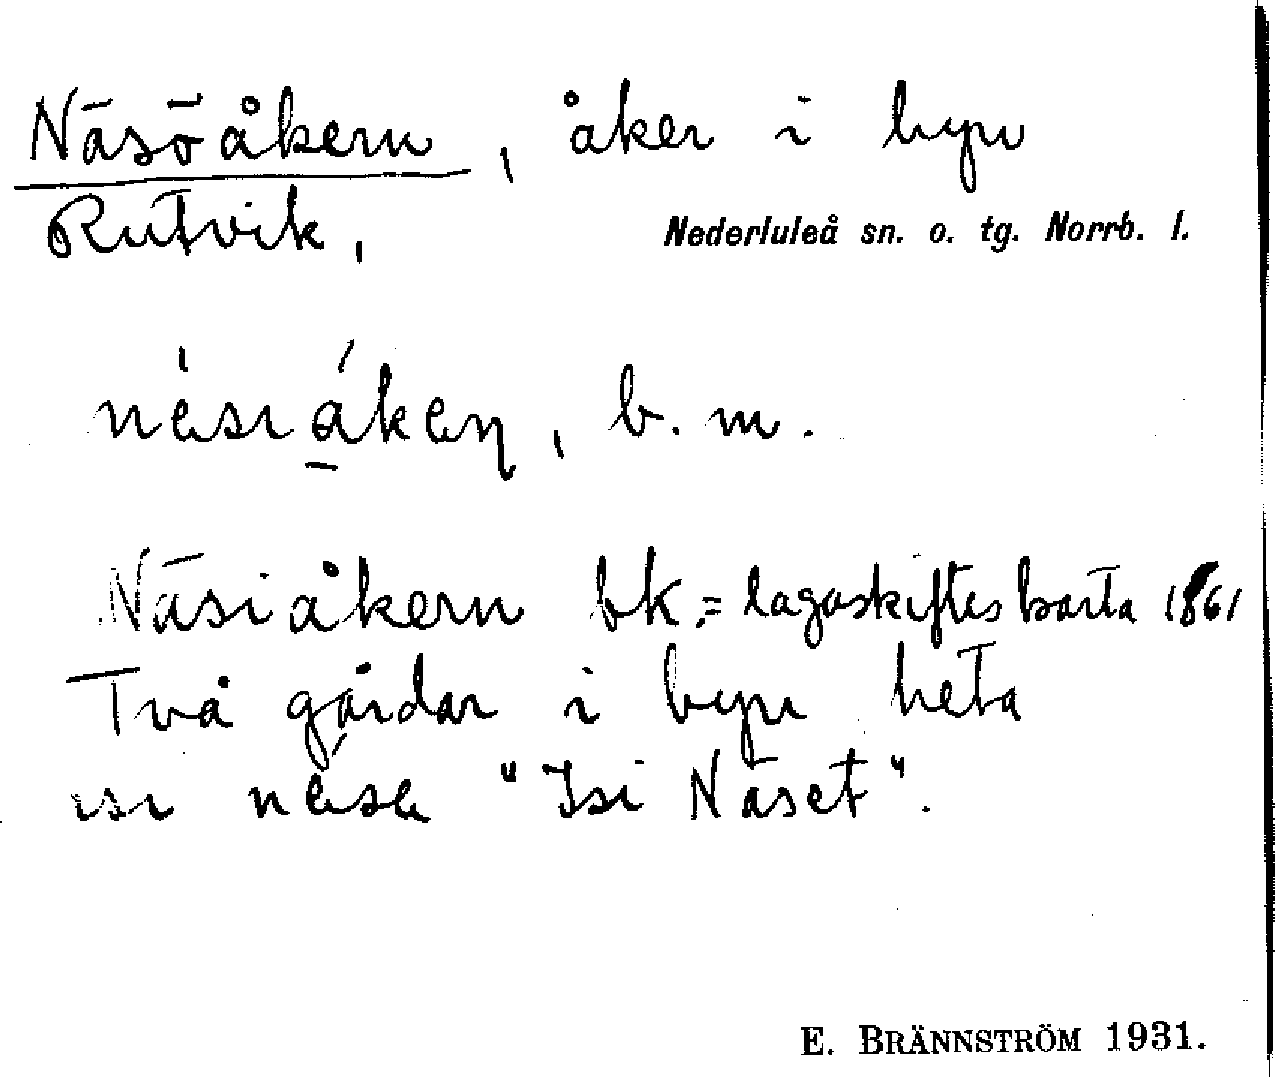 Näsöåkern, åker i byn
Rutvik, Nederluleå sn. o. tg. Norrb. l.
b. m.
Näsiåkern bk. = lagaskifteskarta 1861
Två gårdar i byn heta
"Isi Näset".
E. BRÄNNSTRÖM 1931.